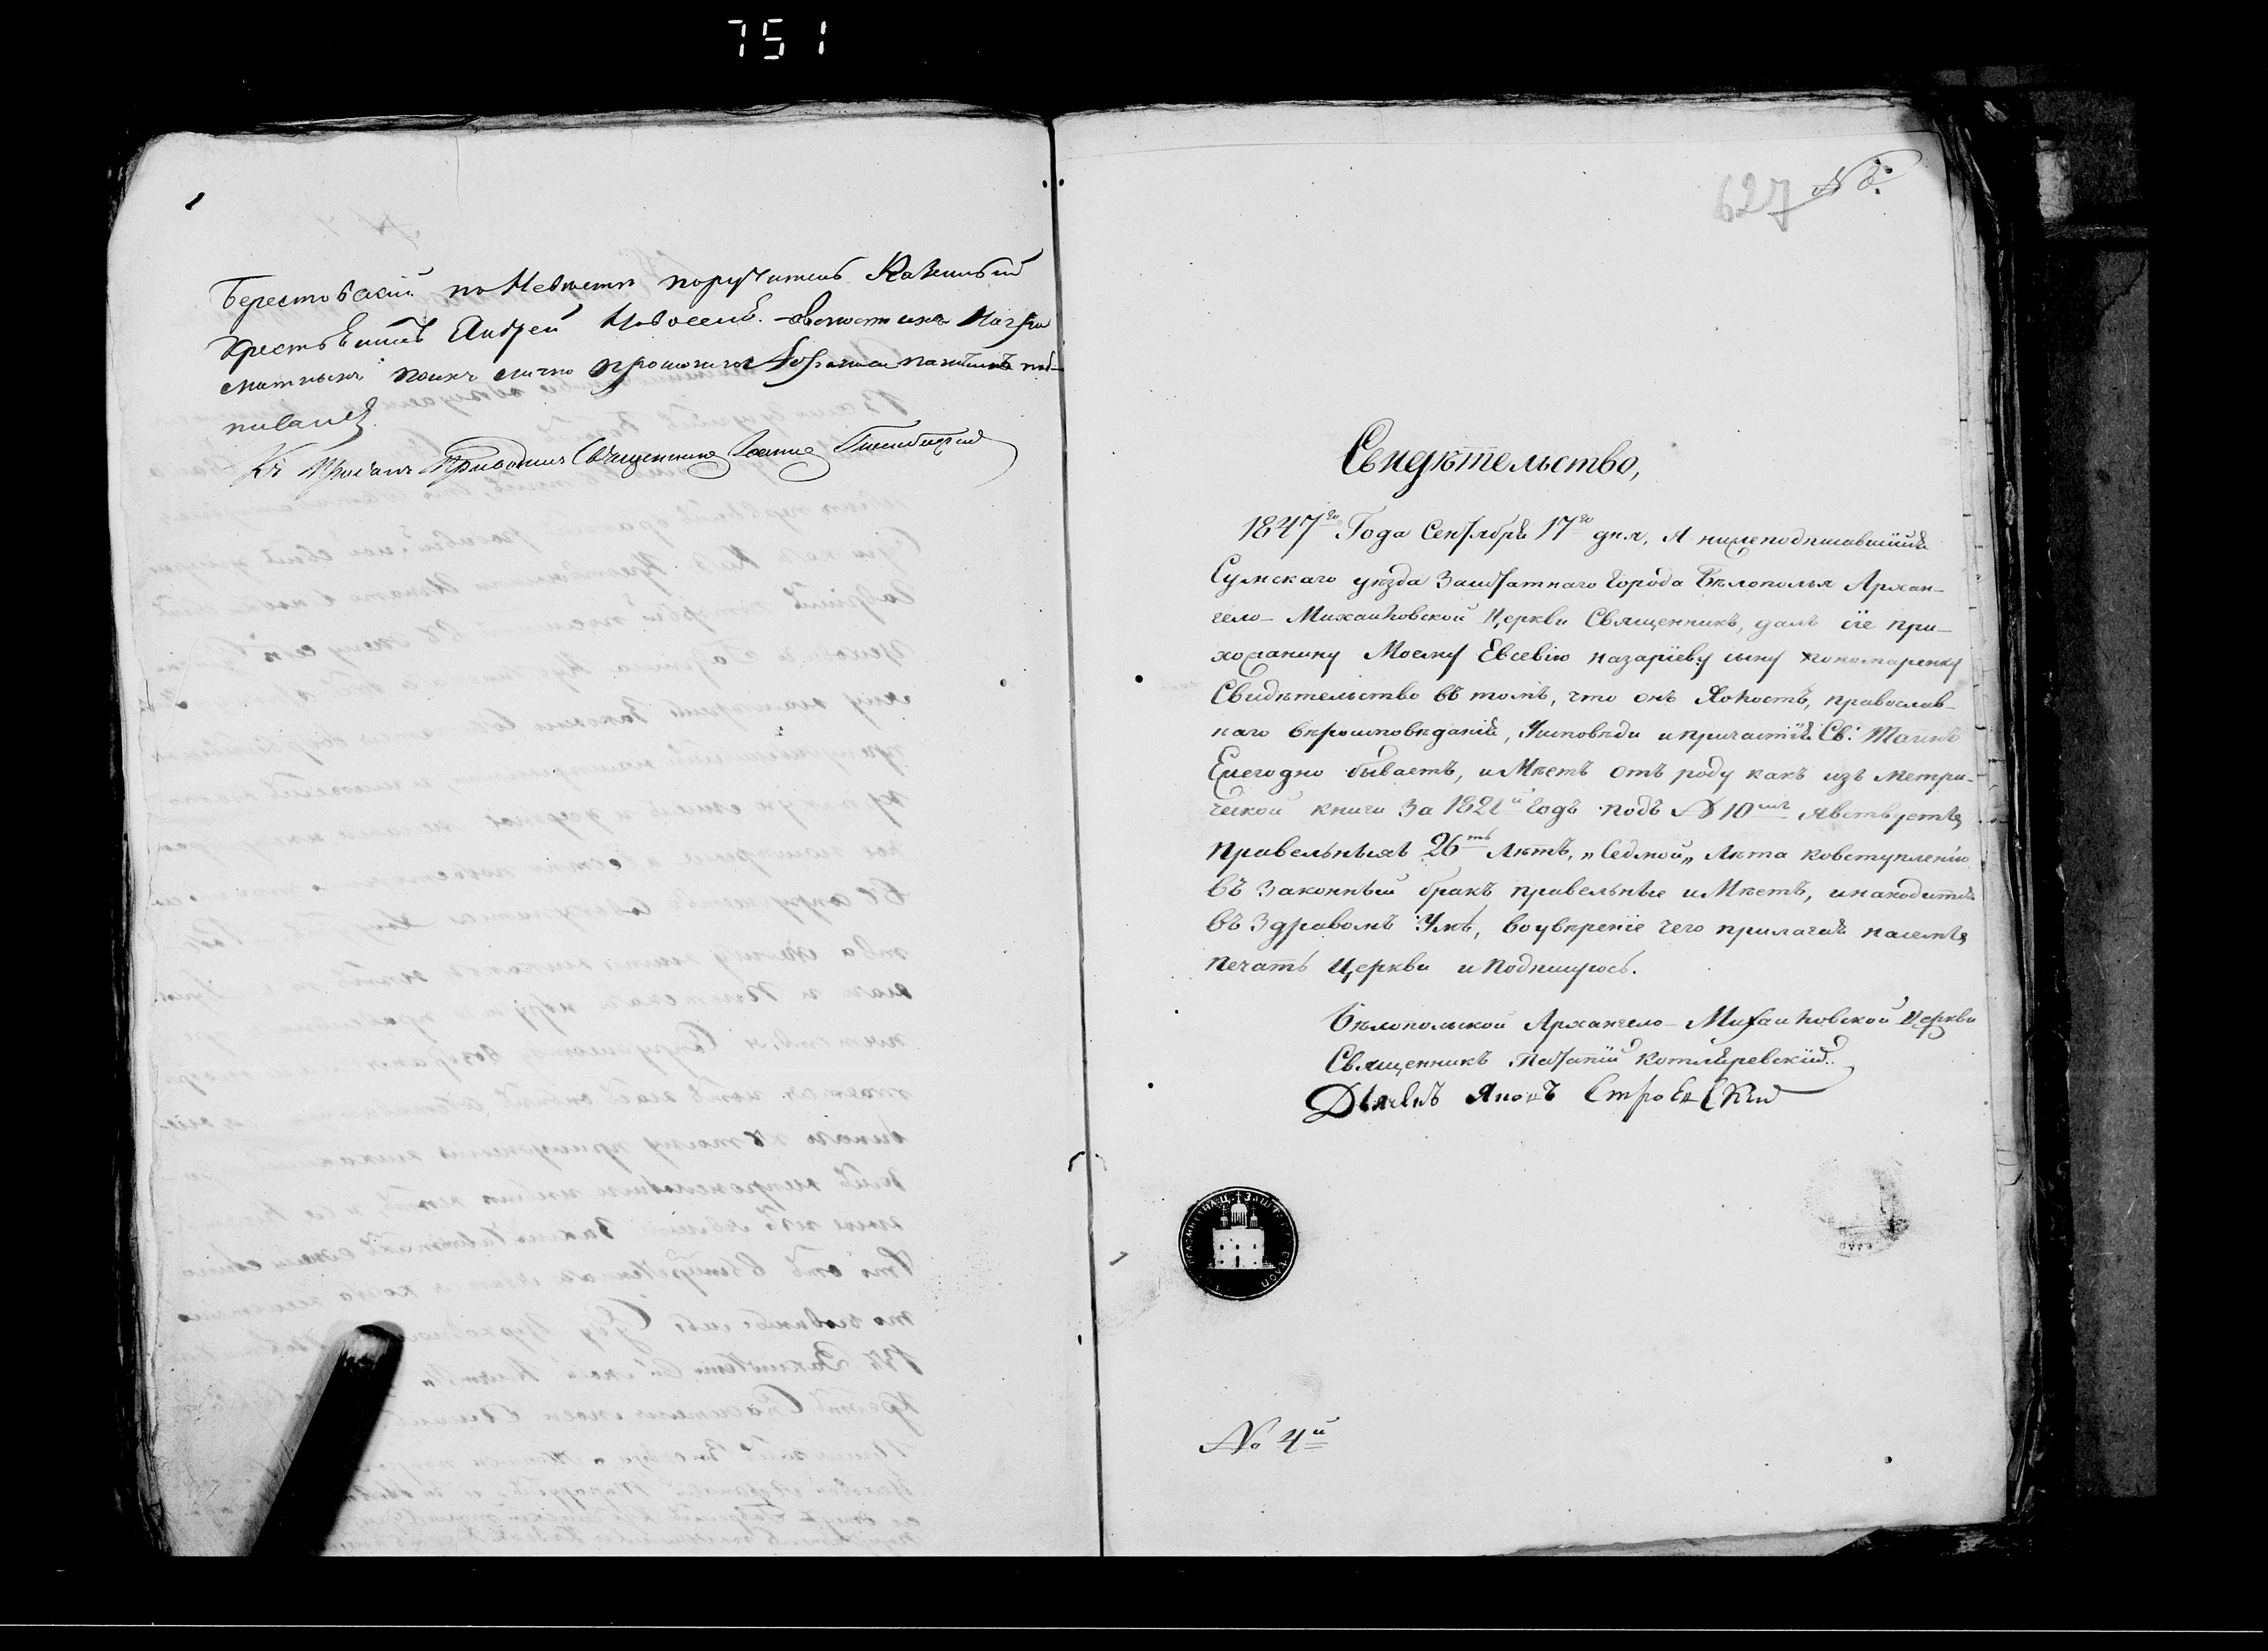 751
Берестовскій по Невѣстѣ поручитель Казенный
Крестьянинъ Андрей Новосели
лично
писался
Къ Присягѣ Приводилъ Священникъ Іоаннъ
627
Свидѣтельство,
1847го Года Сентября 17го дня, Я нижеподписавшійся
Сумскаго уѣзда Заштатнаго Города Бѣлополья Архан-
гело-Михайловской Церкви Священникъ, далъ сіе При-
хожанину Моему Евсевію назаріеву сыну Пономаренку
Свидѣтельство въ томъ, что онъ Холостъ, православ-
наго вѣроисповѣданія, Уисповѣди и причастія Св: Таинъ
Ежегодно бываетъ, иМѣетъ отъ роду какъ изъ метри-
ческой книги За 1821й Годъ подъ № 10мъ явствуетъ
правельныхъ 26ть лѣтъ, „Седмой„ лѣта ковступленію
въ Законный бракъ правельные иМѣетъ, инаходится
въ Здравомъ Умѣ, воувѣреніе чего прилагая насемъ
печать Церкви иПодпишусь.
Бѣлопольской Архангело-Михайловской Церкви
Священникъ Потапій Котляревскій..
Дьячекъ Яковъ
№ 4й